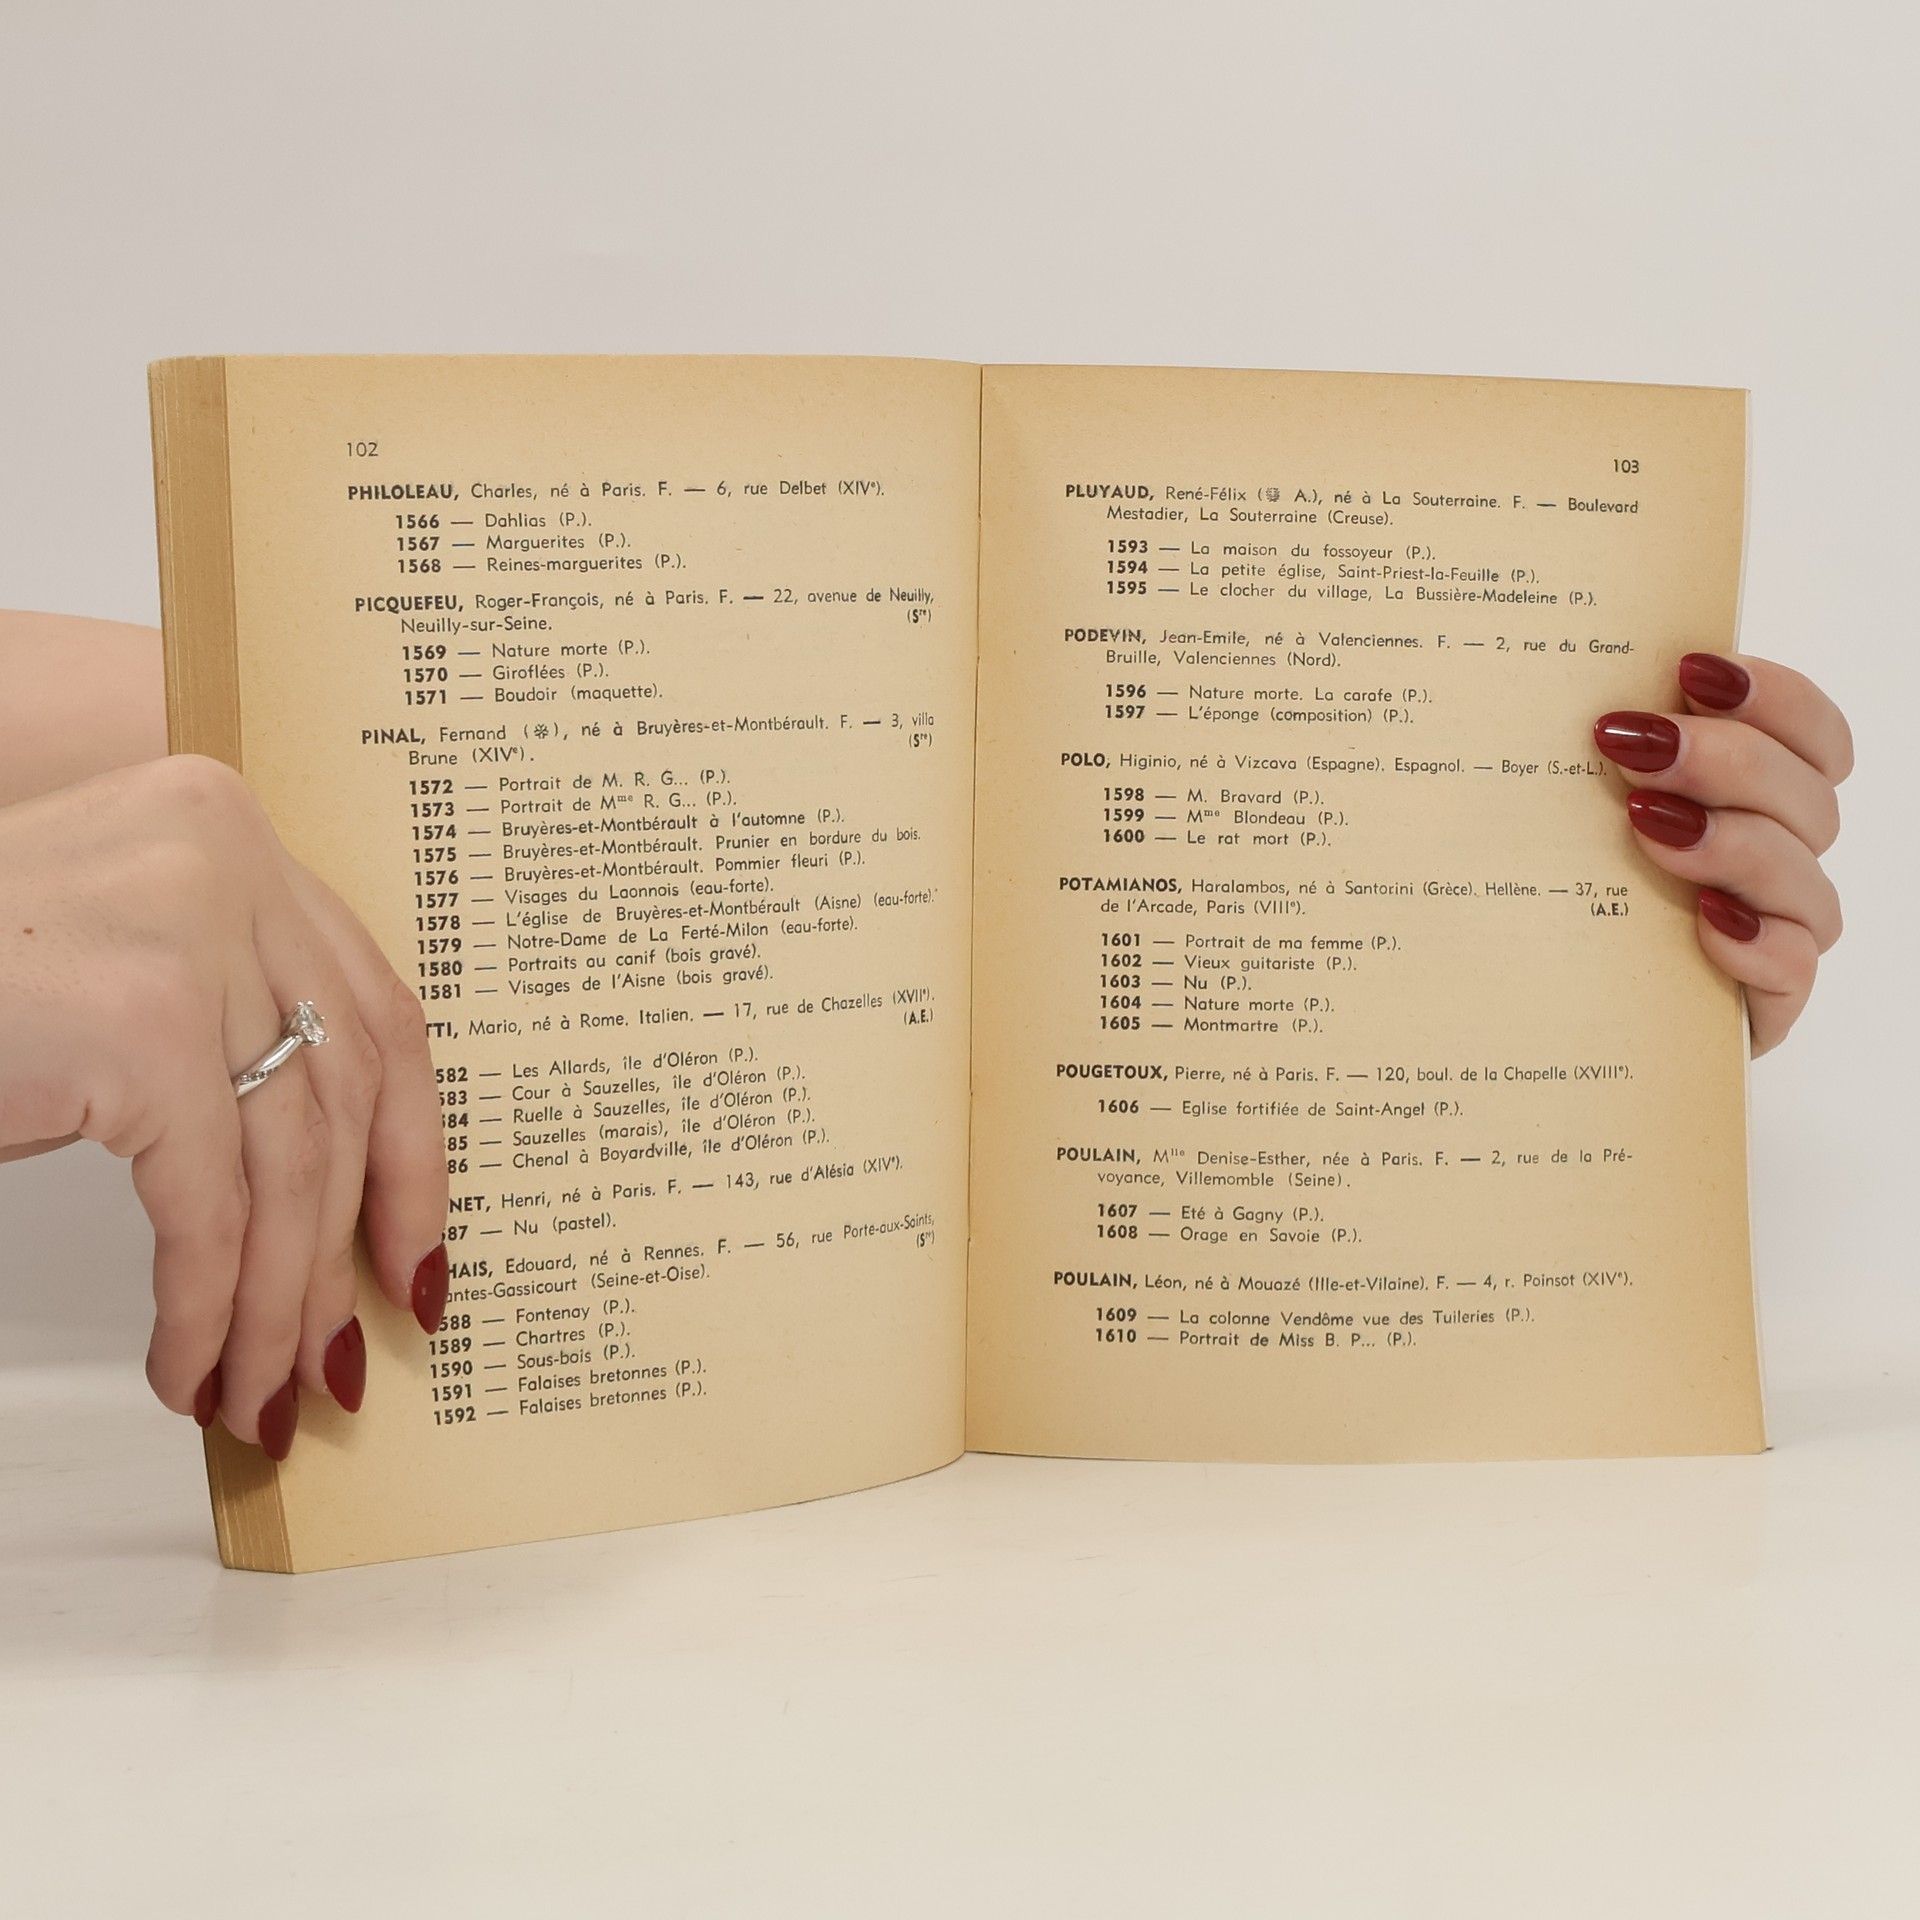 102
PHILOLEAU, Charles, né à Paris. F. — 6, rue Delbet (XIVᵉ).
1566 — Dahlias (P.).
1567 — Marguerites (P.).
1568 — Reines-marguerites (P.).
PICQUEFEU, Roger-François, né à Paris. F. — 22, avenue de Neuilly,
Neuilly-sur-Seine. (Sʳᵉ)
1569 — Nature morte (P.).
1570 — Giroflées (P.).
1571 — Boudoir (maquette).
PINAL, Fernand (❉), né à Bruyères-et-Montbérault. F. — 3, villa
Brune (XIVᵉ). (Sʳᵉ)
1572 — Portrait de M. R. G... (P.).
1573 — Portrait de Mᵐᵉ R. G... (P.).
1574 — Bruyères-et-Montbérault à l'automne (P.).
1575 — Bruyères-et-Montbérault. Prunier en bordure du bois.
1576 — Bruyères-et-Montbérault. Pommier fleuri (P.).
1577 — Visages du Laonnois (eau-forte).
1578 — L'église de Bruyères-et-Montbérault (Aisne) (eau-forte).
1579 — Notre-Dame de La Ferté-Milon (eau-forte).
1580 — Portraits au canif (bois gravé).
1581 — Visages de l'Aisne (bois gravé).
TTI, Mario, né à Rome. Italien. — 17, rue de Chazelles (XVIIᵉ).
(A.E.)
582 — Les Allards, île d'Oléron (P.).
583 — Cour à Sauzelles, île d'Oléron (P.).
84 — Ruelle à Sauzelles, île d'Oléron (P.).
85 — Sauzelles (marais), île d'Oléron (P.).
86 — Chenal à Boyardville, île d'Oléron (P.).
NET, Henri, né à Paris. F. — 143, rue d'Alésia (XIVᵉ).
587 — Nu (pastel).
HAIS, Edouard, né à Rennes. F. — 56, rue Porte-aux-Saints,
antes-Gassicourt (Seine-et-Oise). (Sʳᵉ)
588 — Fontenay (P.).
1589 — Chartres (P.).
1590 — Sous-bois (P.).
1591 — Falaises bretonnes (P.).
1592 — Falaises bretonnes (P.).
103
PLUYAUD, René-Félix (A.), né à La Souterraine. F. — Boulevard
Mestadier, La Souterraine (Creuse).
1593 — La maison du fossoyeur (P.).
1594 — La petite église, Saint-Priest-la-Feuille (P.).
1595 — Le clocher du village, La Bussière-Madeleine (P.).
PODEVIN, Jean-Emile, né à Valenciennes. F. — 2, rue du Grand-
Bruille, Valenciennes (Nord).
1596 — Nature morte. La carafe (P.).
1597 — L'éponge (composition) (P.).
POLO, Higinio, né à Vizcava (Espagne). Espagnol. — Boyer (S.-et-L.).
1598 — M. Bravard (P.).
1599 — Mᵐᵉ Blondeau (P.).
1600 — Le rat mort (P.).
POTAMIANOS, Haralambos, né à Santorini (Grèce). Hellène. — 37, rue
de l'Arcade, Paris (VIIIᵉ). (A.E.)
1601 — Portrait de ma femme (P.).
1602 — Vieux guitariste (P.).
1603 — Nu (P.).
1604 — Nature morte (P.).
1605 — Montmartre (P.).
POUGETOUX, Pierre, né à Paris. F. — 120, boul. de la Chapelle (XVIIIᵉ).
1606 — Eglise fortifiée de Saint-Angel (P.).
POULAIN, Mˡˡᵉ Denise-Esther, née à Paris. F. — 2, rue de la Pré-
voyance, Villemomble (Seine).
1607 — Eté à Gagny (P.).
1608 — Orage en Savoie (P.).
POULAIN, Léon, né à Mouazé (Ille-et-Vilaine). F. — 4, r. Poinsot (XIVᵉ).
1609 — La colonne Vendôme vue des Tuileries (P.).
1610 — Portrait de Miss B. P... (P.).